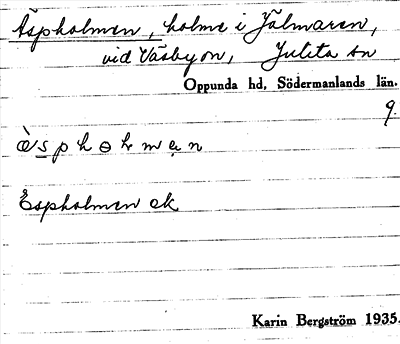 Äspholmen, holme i Hjälmaren,
vid Väsbyön, Julita sn
Oppunda hd, Södermanlands län.
9.
Espholmen ek
Karin Bergström 1935.